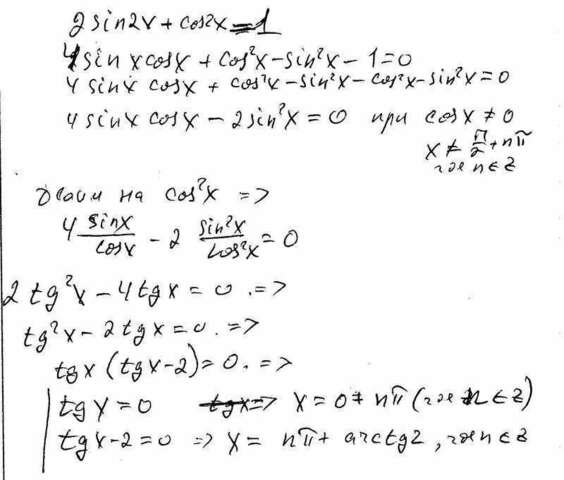 2 sin2x + cos2x = 1
4 sin x cos x + cos²x - sin²x - 1 = 0
4 sin x cos x + cos²x - sin²x - cos²x - sin²x = 0
4 sin x cos x - 2 sin²x = 0 при cos x ≠ 0
x ≠ π/2 + nπ
где n ∈ Z
делим на cos²x =>
4 sinx/cosx - 2 sin²x/cos²x = 0
2 tg²x - 4 tg x = 0 . =>
tg²x - 2 tg x = 0 . =>
tg x (tg x - 2) = 0 . =>
tg x = 0 => x = 0 + nπ (где n ∈ Z)
tg x - 2 = 0 => x = nπ + arctg2, где n ∈ Z